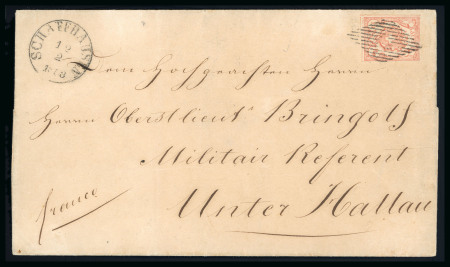 SCHAFFHAUSEN
12
2
Dem Hochgeachten Herrn
Herrn Oberstlieut. Bringolf
Militair Referent
Unter Hallau
franco